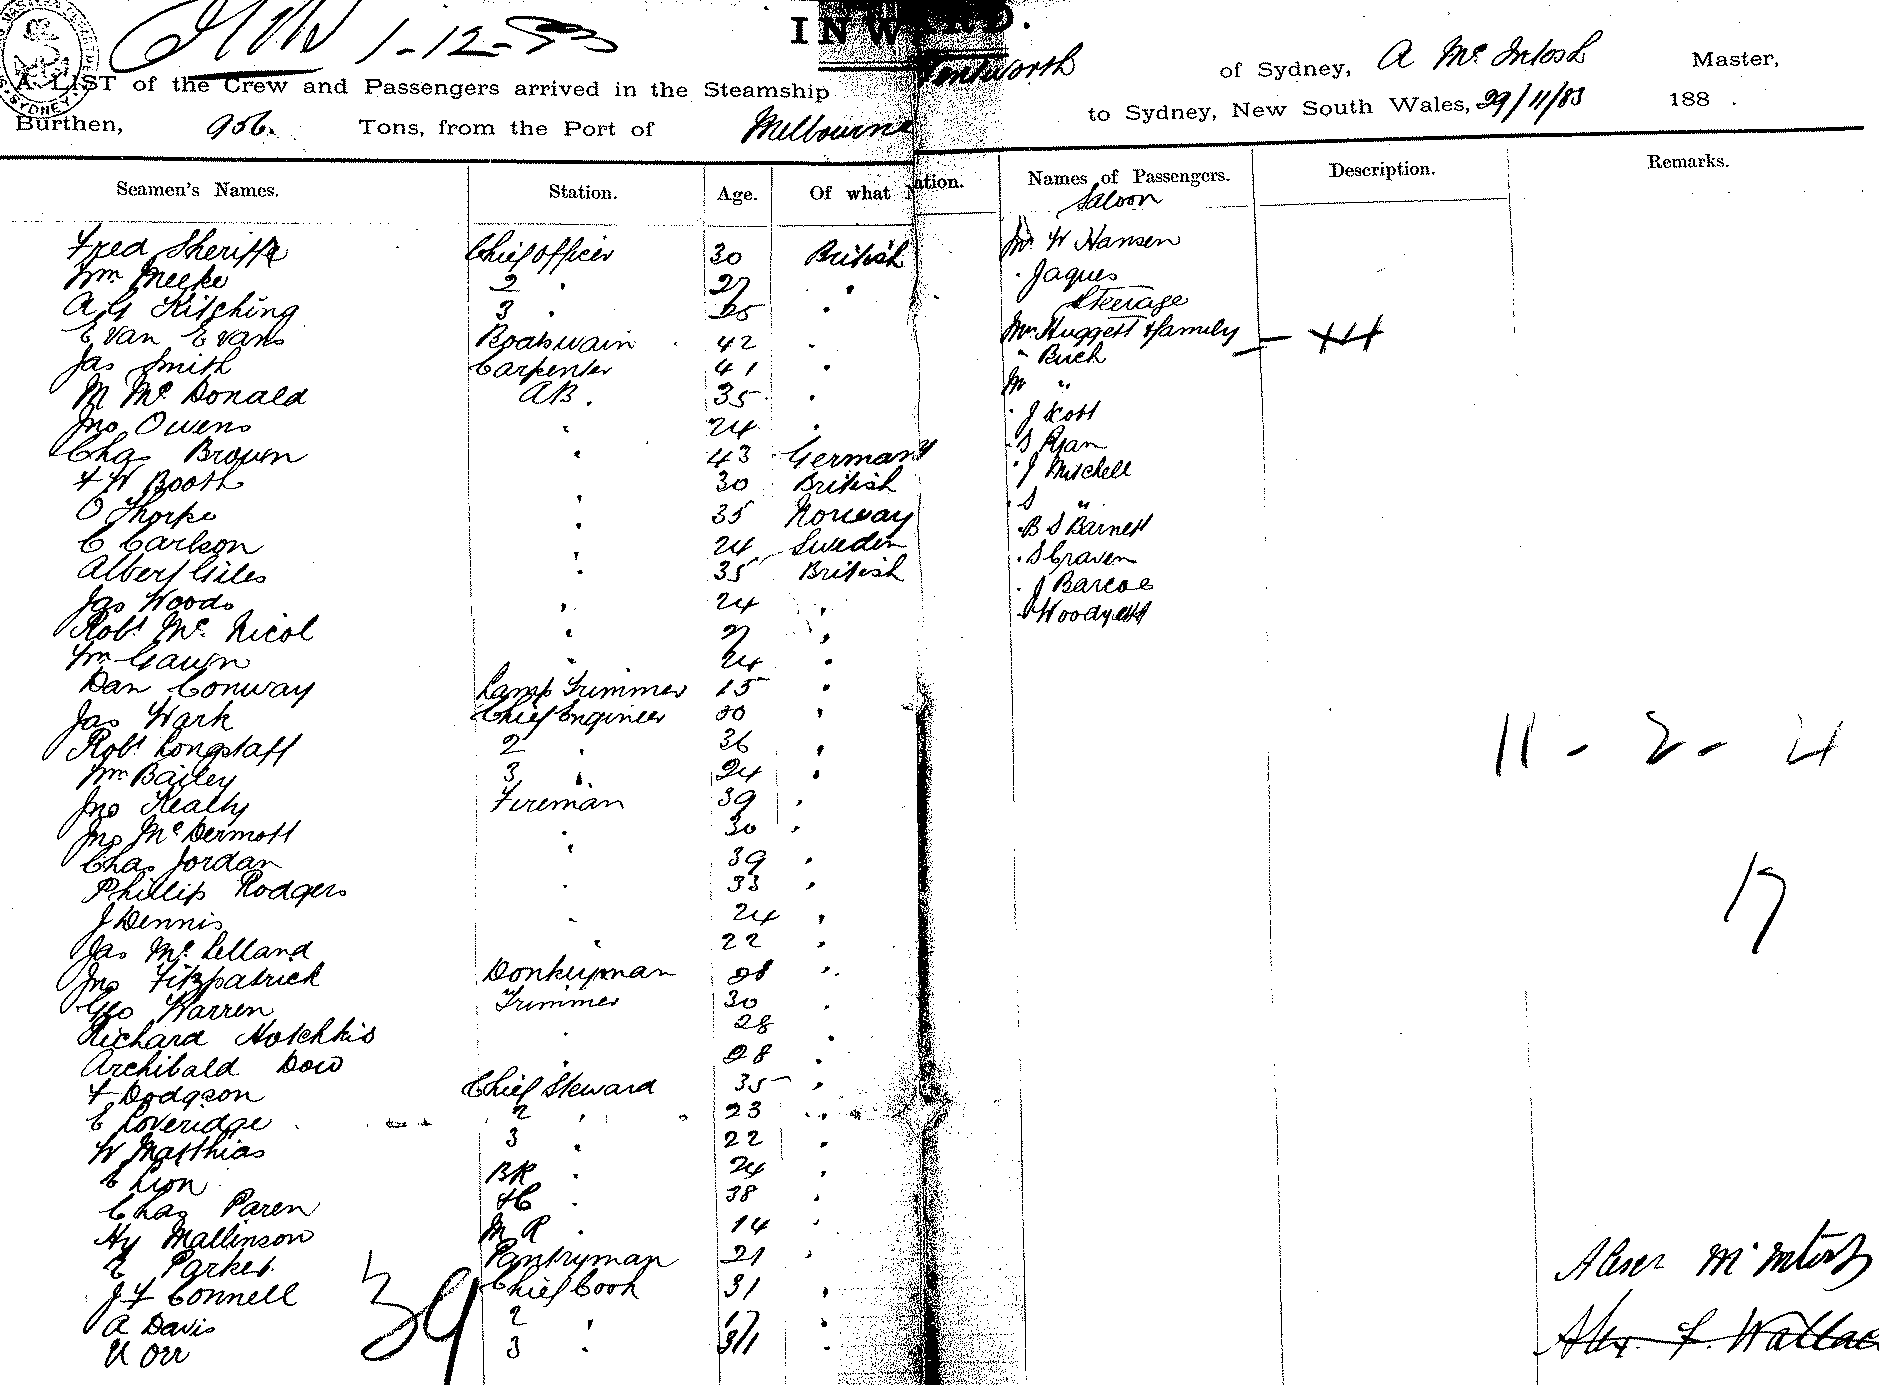 1-12-83
INWARD.
A LIST of the Crew and Passengers arrived in the Steamship Wentworth of Sydney, A McIntosh Master,
Burthen, 956 Tons, from the Port of Melbourne to Sydney, New South Wales, 29/11/83 188 .
Seamen's Names. Station. Age. Of what Nation. Names of Passengers. Description. Remarks.
Saloon
Fred Sheriffe Chief Officer 30 British Mr W Hansen
Wm Meeke 2 " 27 " " Jaques
Steerage
A G Kitching 3 " 25 "
Evan Evans Boatswain 42 " Mrs Huggett & family
Jas Smith Carpenter 41 " " Buch
M McDonald AB. 35 " Mr "
Jno Owens " 24 " " J Scott
Chas Brown " 43 Germany " S Ryan
F W Booth " 30 British " J Mitchell
O Thorpe " 35 Norway " S "
C Carlson " 24 Sweden " B S Barnett
Albert Giles " 35 British " S Craven
Jas Woods " 24 " " J Barcoe
Robt McNicol " 27 " " Woodyatt
Wm Gawn " 24 "
Dan Conway Lamp Trimmer 15 "
Jas Wark Chief Engineer 50 "
Robt Longstaff 2 " 36 "
Wm Bailey 3 " 24 "
11 - 2 - 4
Jno Kealty Fireman 39 "
Jno McDermott " 30 "
Chas Jordan " 39 "
Phillip Rodgers " 33 "
17
J Dennis " 24 "
Jas McLelland " 22 "
Jno Fitzpatrick Donkeyman 28 "
Geo Warren Trimmer 30 "
Richard Hotchkis " 28 "
Archibald Dow " 28 "
F Dodgson Chief Steward 35 "
E Loveridge 2 " 23 "
W Matthias 3 " 22 "
C Lion BR " 24 "
Chas Paren FC " 38 "
Hy Mallinson M R " 14 "
E Parker Pantryman 21 "
J F Connell Chief Cook 31 "
A Davis 2 " 17 "
U Orr 3 " 31 "
39
Alexr McIntosh
Alex. F. Wallace